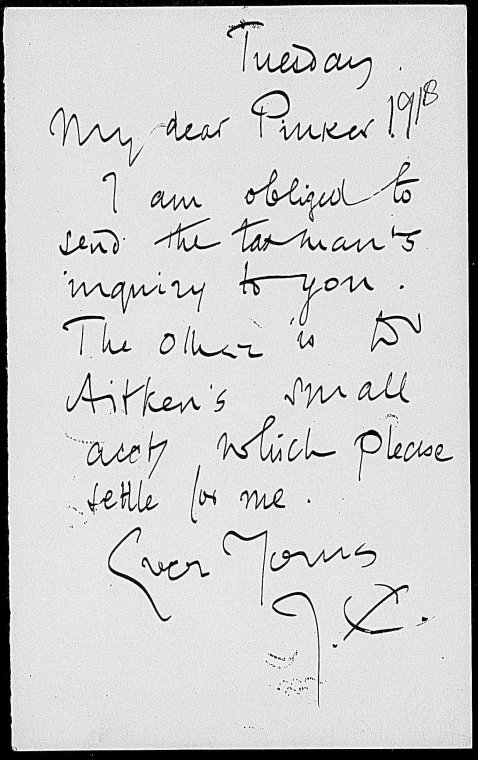 Tuesday.
1918
My dear Pinker.
I am obliged to
send the taxman's
inquiry to you.
The other is Dr
Aitken's small
acct which please
settle for me.
Ever Yours
J.C.